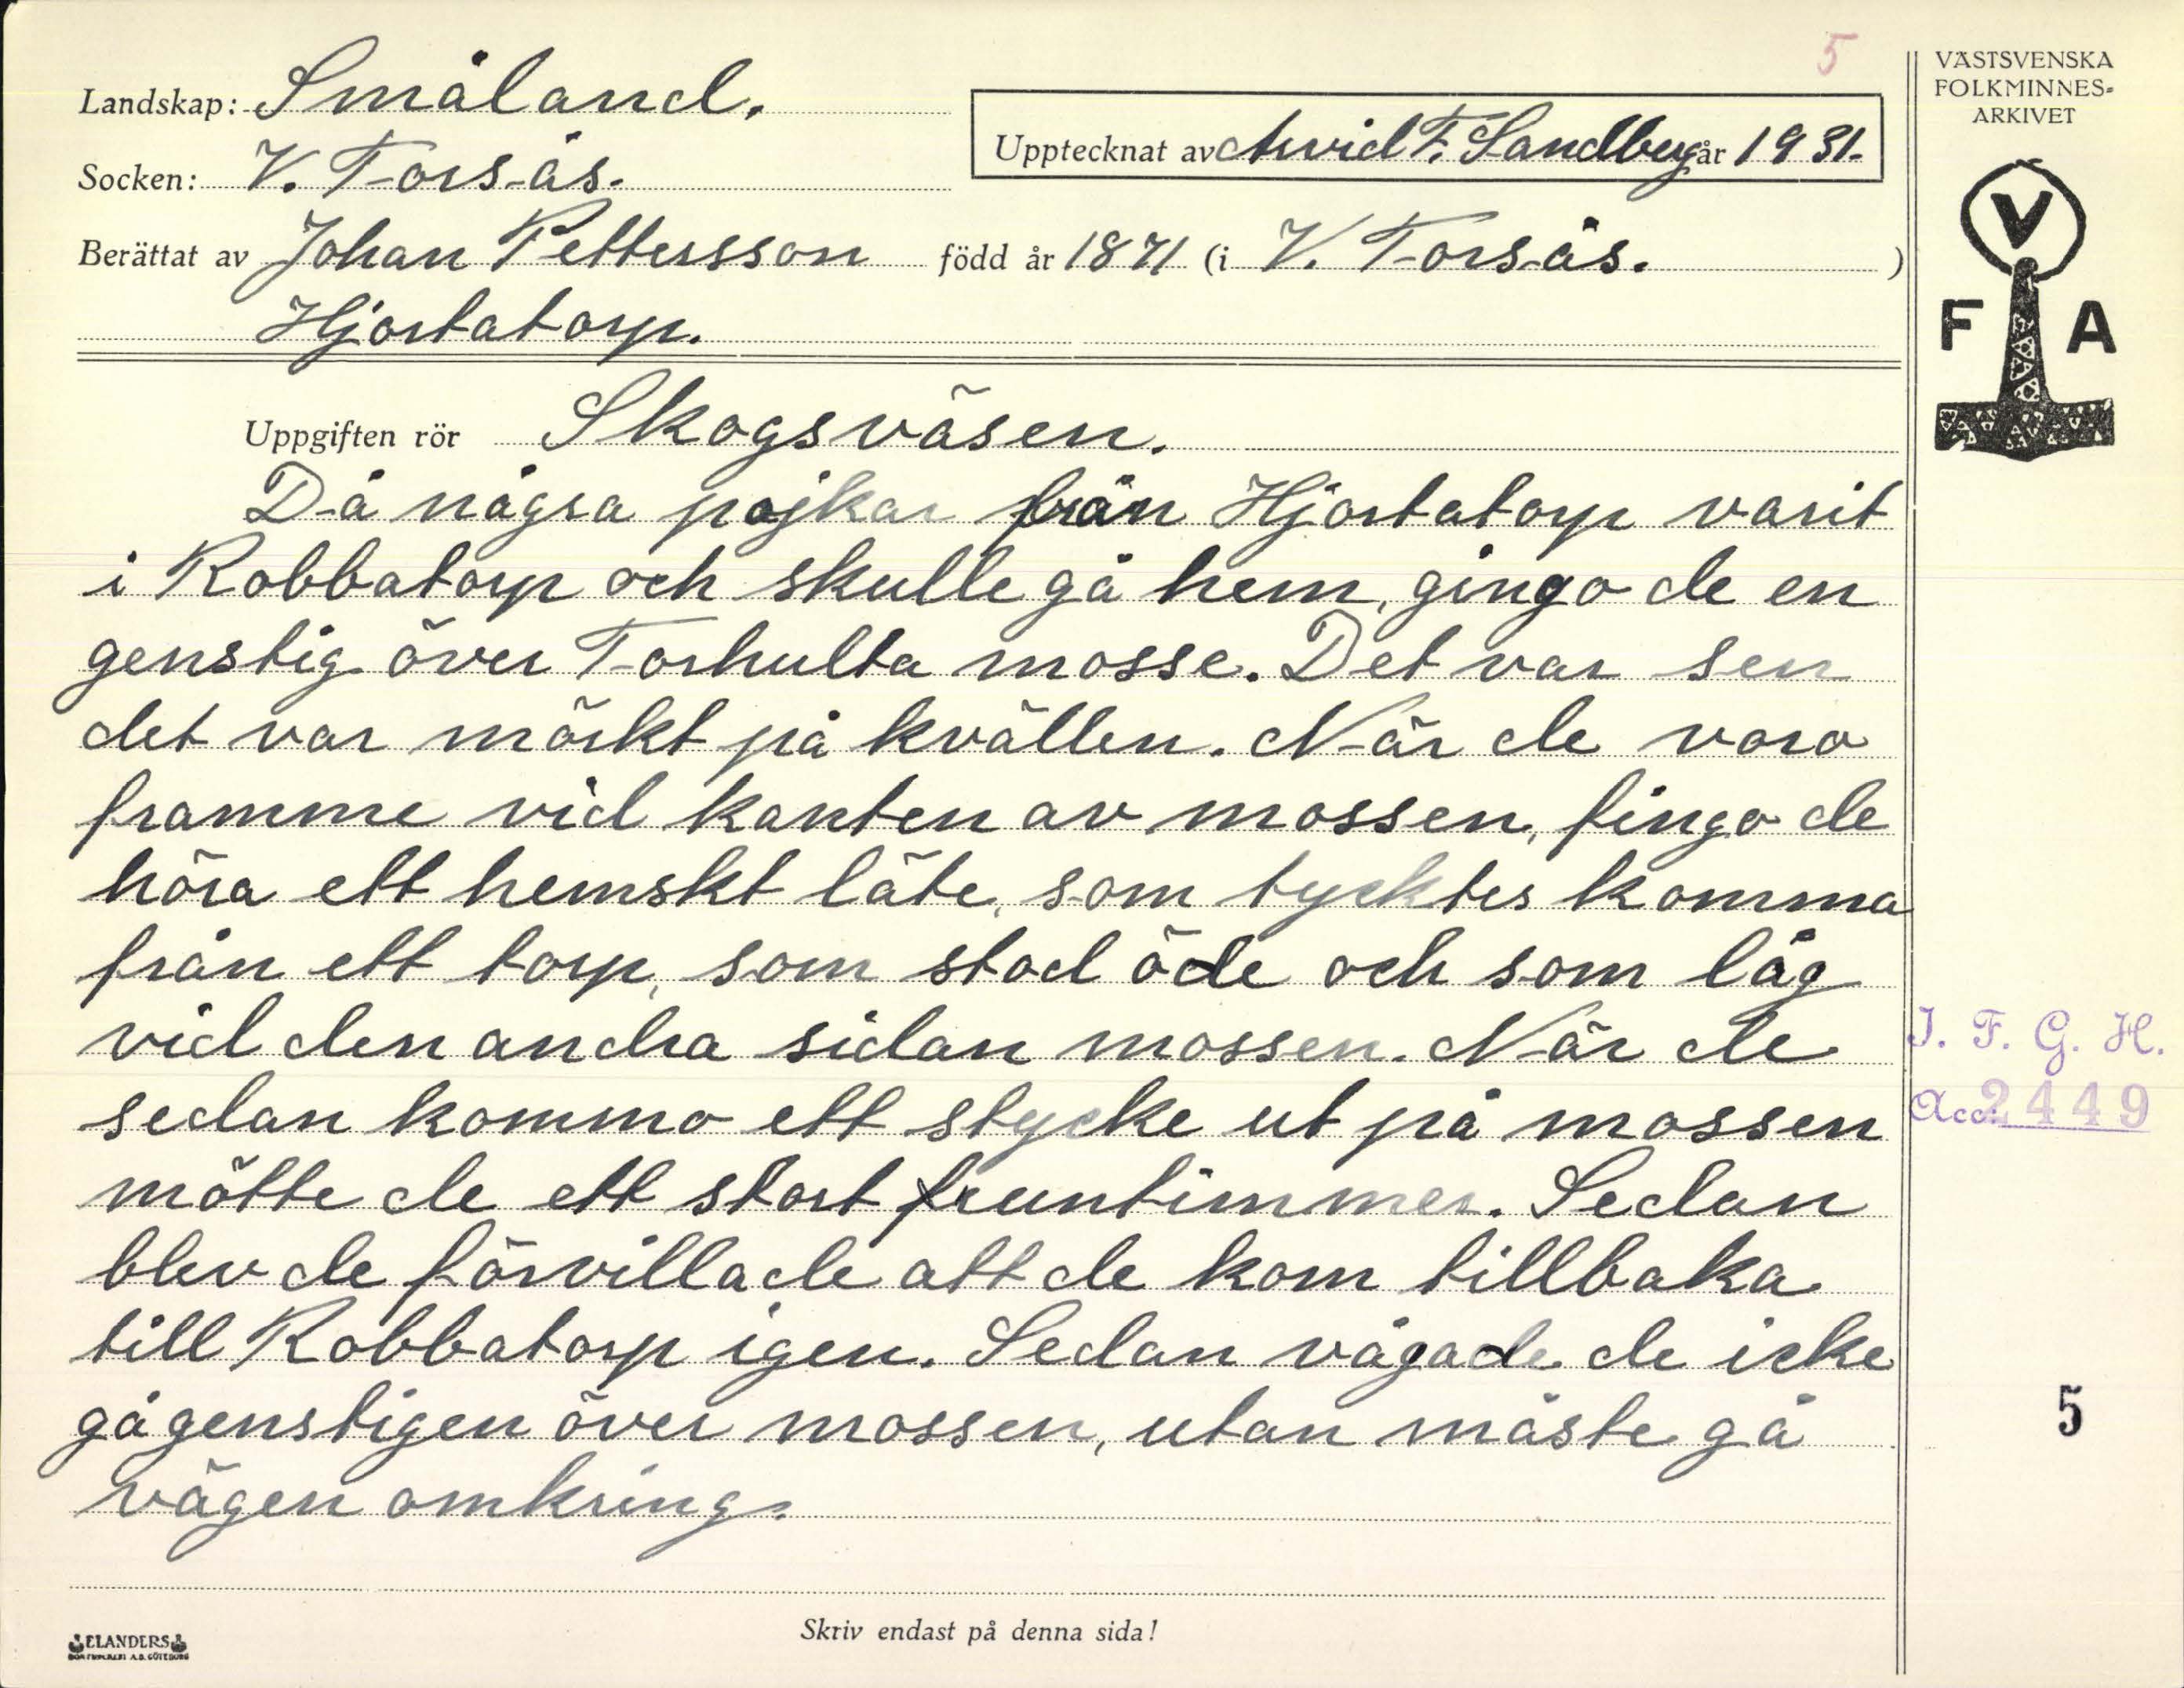 5
Landskap: Småland.
Socken: V. Torsås.
Upptecknat av Arvid F. Sandberg år 1931.
Berättat av Johan Pettersson född år 1871 (i V. Torsås. )
Hjortatorp.
Uppgiften rör Skogsväsen.
Då några pojkar från Hjortatorp varit
i Robbatorp och skulle gå hem, gingo de en
genstig över Torhulta mosse. Det var sen
det var mörkt på kvällen. När de voro
framme vid kanten av mossen, fingo de
höra ett hemskt läte, som tycktes komma
från ett torp, som stod öde och som låg
vid den andra sidan mossen. När de
sedan kommo ett stycke ut på mossen
mötte de ett stort fruntimmer. Sedan
blev de förvillade att de kom tillbaka
till Robbatorp igen. Sedan vågade de icke
gå genstigen över mossen, utan måste gå
vägen omkring.
Skriv endast på denna sida!
ELANDERS
BOKTRYCKERI A.B. GÖTEBORG
VÄSTSVENSKA
FOLKMINNES-
ARKIVET
V
F A
I. F. G. H.
Acc. 2449
5